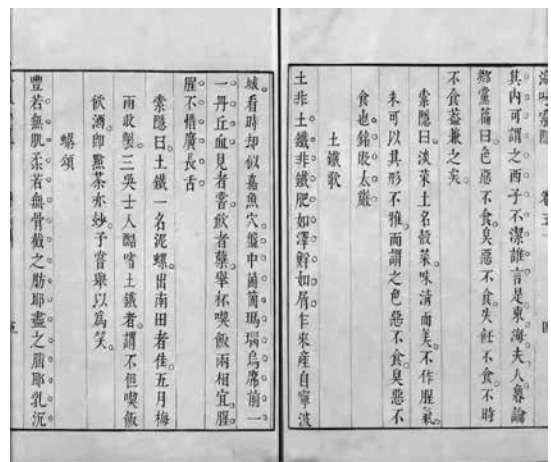 海味索隱
其内可謂之西子不潔誰言是東海夫人魯論
鄉黨篇曰色惡不食臭惡不食失飪不食不時
不食蓋兼之矣
索隱曰淡菜土名殼菜味清而美不作腥氣
未可以其形不雅而謂之色惡不食臭惡不
食也銘敗太嚴
土鐵歌
土非土鐵非鐵肥如澤鮮如屑乍來產自寧波
城看時却似嘉魚穴盤中個個瑪瑙烏席前一
一丹丘血見者嘗飲者蘗舉杯喫飯兩相宜腥
腥不惜廣長舌
索隱曰土鐵一名泥螺出南田者佳五月梅
雨收製三吳士人酷嗜土鐵者謂不但喫飯
飲酒即點茶亦妙予嘗舉以爲笑
蠣頌
豐若無肌柔若無骨截之肪耶盡之脂耶乳沉